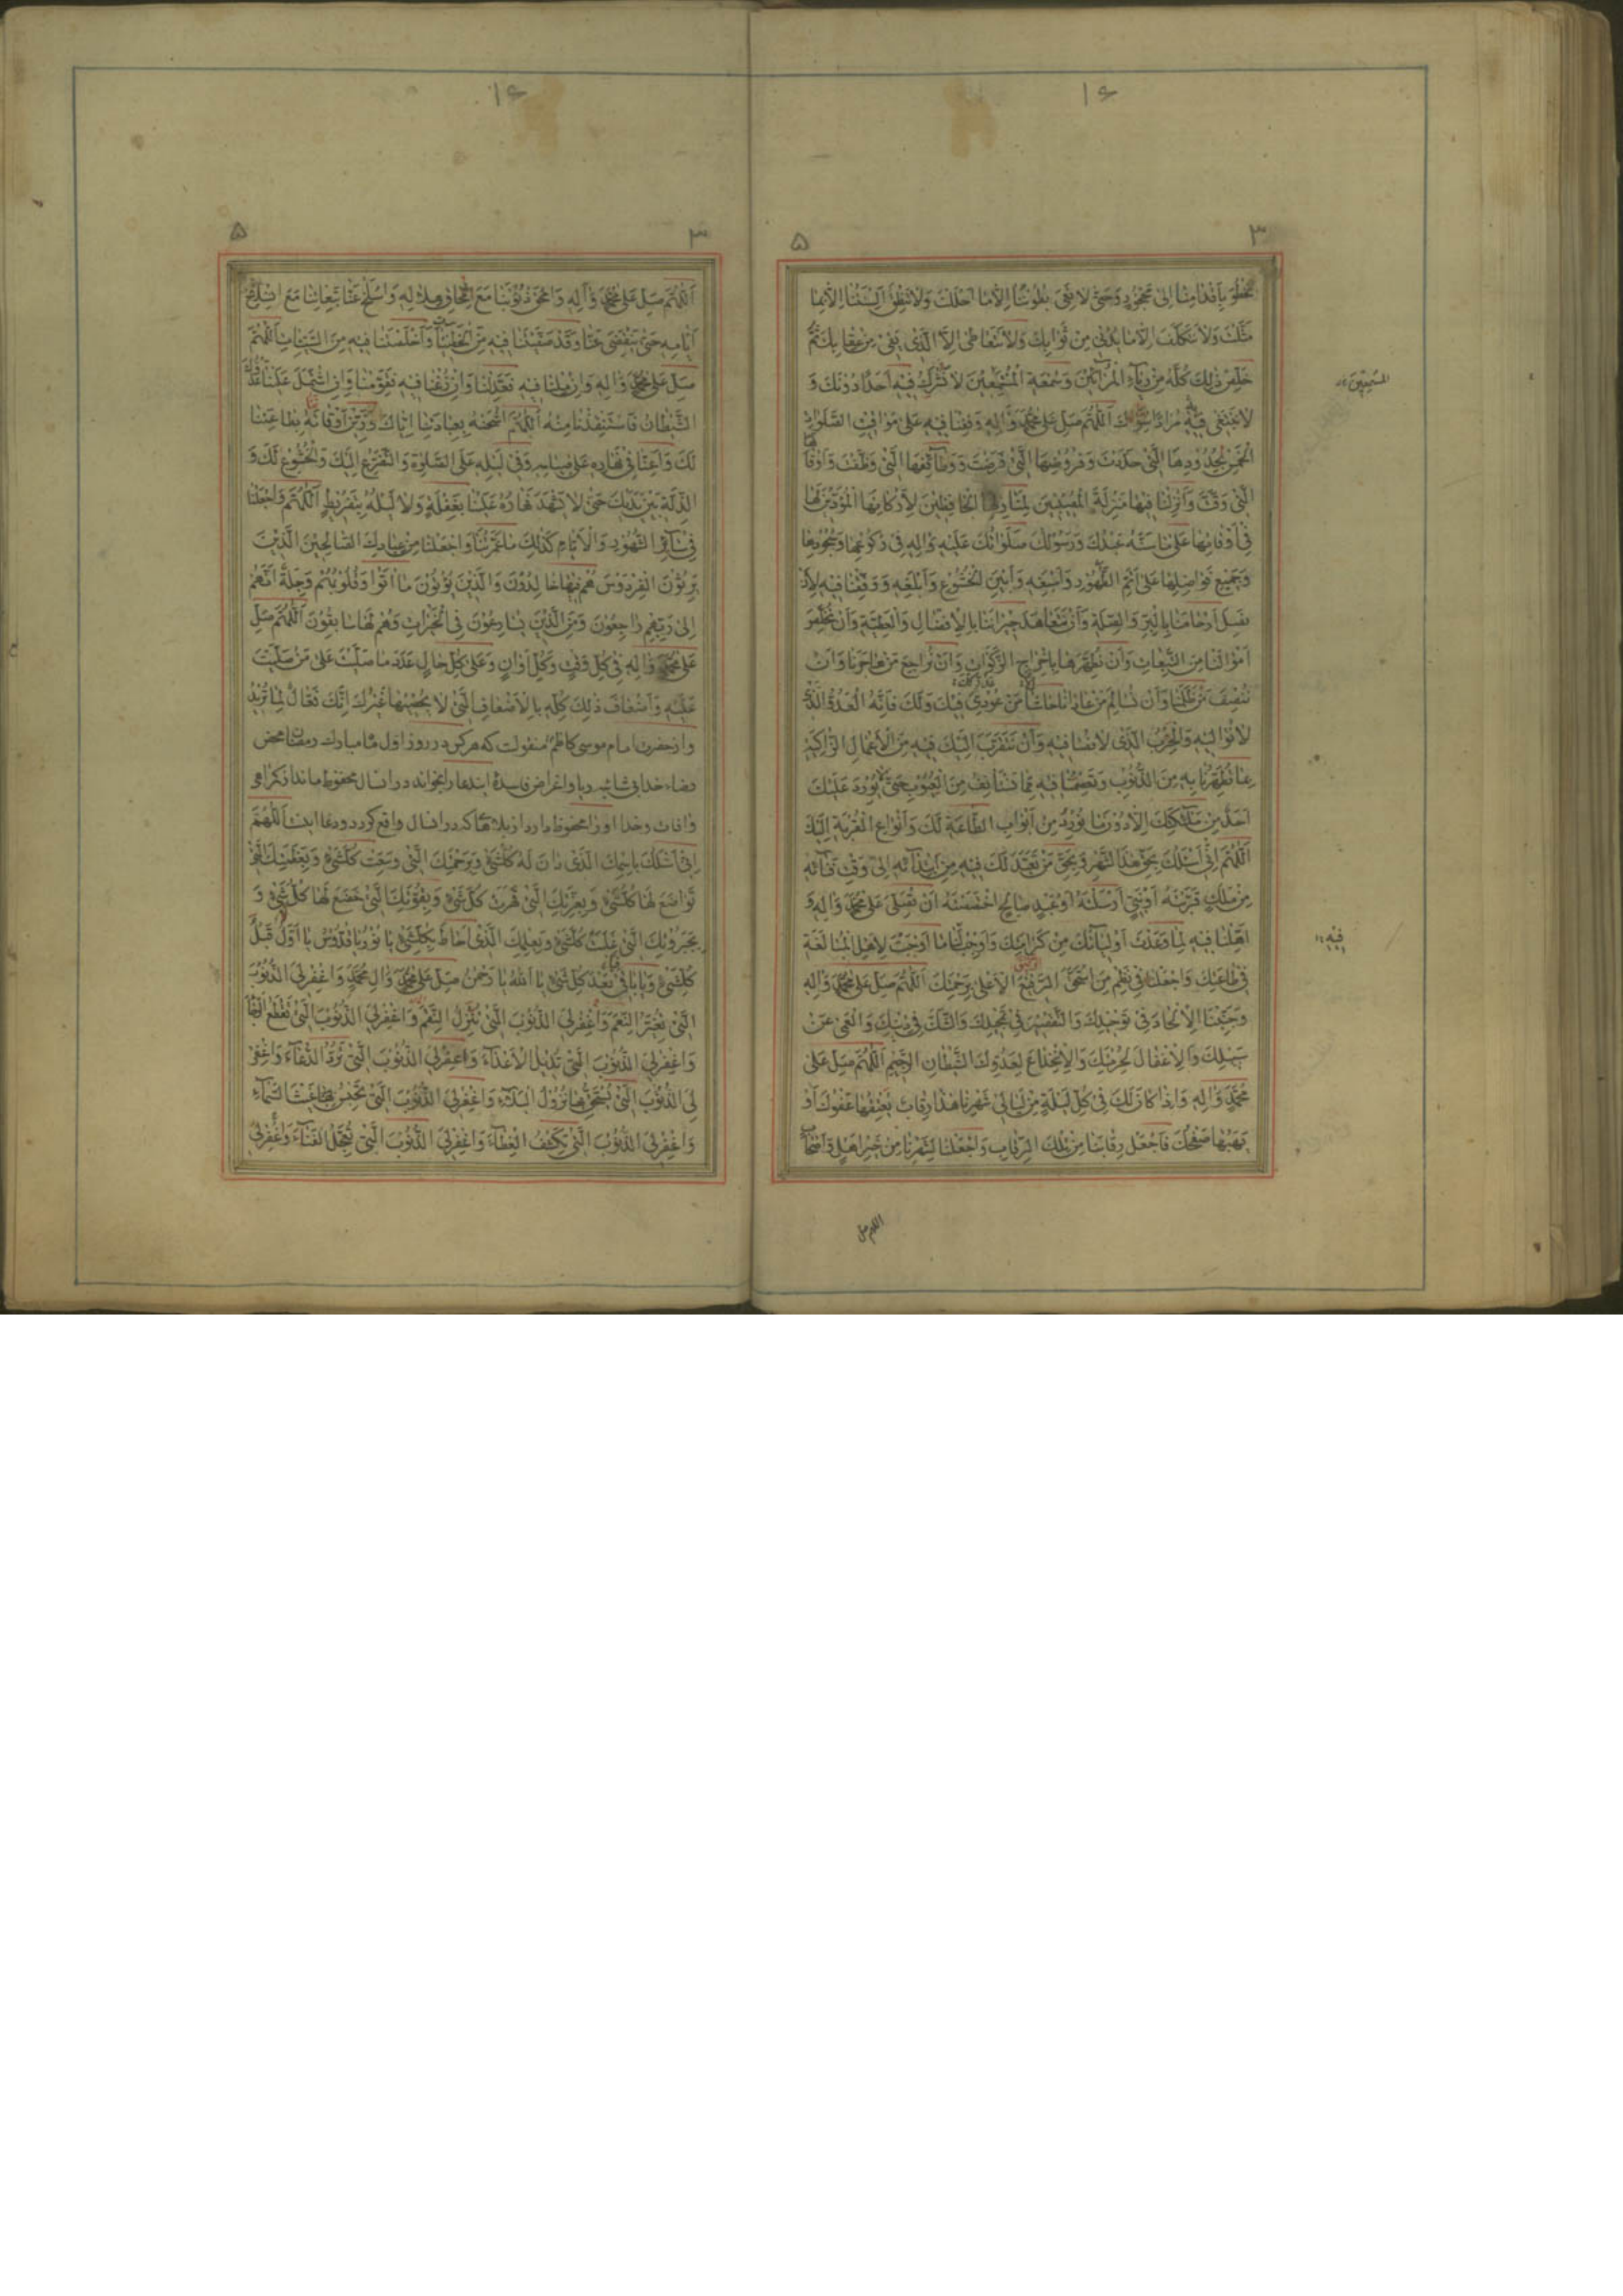 ۱۶
۳
۵
نَخْطُوَ بِاَقْدٰامِنٰا اِلىٰ مَحْجُورٍ وَحَتّىٰ لاٰ تَعِىَ بُطُونُنٰا اِلاّٰ مٰا اَحْلَلْتَ وَلاٰ تَنْطِقَ اَلْسِنَتُنٰا اِلاّٰ بِمٰا
مَثَّلْتَ وَلاٰ نَتَكَلَّفَ اِلاّٰ مٰا يُدْنى مِنْ ثَوٰابِكَ وَلاٰ نَتَعٰاطىٰ اِلاَّ الَّذى يَقى مِنْ عِقٰابِكَ ثُمَّ
خَلِّصْ ذٰلِكَ كُلَّهُ مِنْ رِيٰاۤءِ الْمُرٰاۤئينَ وَسُمْعَةِ الْمُسْمِعينَ لاٰ نُشْرِكُ فيهِ اَحَدًا دُونَكَ وَ
لاٰ نَبْتَغى فيهِ مُرٰادًا سِوٰاكَ اَللّٰهُمَّ صَلِّ عَلىٰ مُحَمَّدٍ وَاٰلِهِ وَقِفْنٰا فيهِ عَلىٰ مَوٰاقيتِ الصَّلَوٰاتِ
الْخَمْسِ بِحُدُودِهَا الَّتى حَدَّدْتَ وَفُرُوضِهَا الَّتى فَرَضْتَ وَوَظٰاۤئِفِهَا الَّتى وَظَّفْتَ وَاَوْقٰاتِهَا
الَّتى وَقَّتَّ وَاَنْزِلْنٰا فيهٰا مَنْزِلَةَ الْمُصيبينَ لِمَنٰازِلِهَا الْحٰافِظينَ لِاَرْكٰانِهَا الْمُؤَدّينَ لَهٰا
فى اَوْقٰاتِهٰا عَلىٰ مٰا سَنَّهُ عَبْدُكَ وَرَسُولُكَ صَلَوٰاتُكَ عَلَيْهِ وَاٰلِهِ فى رُكُوعِهٰا وَسُجُودِهٰا
وَجَميعِ فَوٰاضِلِهٰا عَلىٰ اَتَمِّ الطَّهُورِ وَاَسْبَغِهِ وَاَبْيَنِ الْخُشُوعِ وَاَبْلَغِهِ وَوَفِّقْنٰا فيهِ لِاَنْ
نَصِلَ اَرْحٰامَنٰا بِالْبِرِّ وَالصِّلَةِ وَاَنْ نَتَعٰاهَدَ جيرٰانَنٰا بِالْاِفْضٰالِ وَالْعَطِيَّةِ وَاَنْ نُخَلِّصَ
اَمْوٰالَنٰا مِنَ التَّبِعٰاتِ وَاَنْ نُطَهِّرَهٰا بِاِخْرٰاجِ الزَّكَوٰاتِ وَاَنْ نُرٰاجِعَ مَنْ هٰاجَرَنٰا وَاَنْ
نُنْصِفَ مَنْ ظَلَمَنٰا وَاَنْ نُسٰالِمَ مَنْ عٰادٰانٰا حٰاشىٰ مَنْ عُودِىَ فيكَ وَلَكَ فَاِنَّهُ الْعَدُوُّ الَّذى
لاٰ نُوٰاليهِ وَالْحِزْبُ الَّذى لاٰ نُصٰافيهِ وَاَنْ نَتَقَرَّبَ اِلَيْكَ فيهِ مِنَ الْاَعْمٰالِ الزّٰاكِيَةِ
بِمٰا تُطَهِّرُنٰا بِهِ مِنَ الذُّنُوبِ وَتَعْصِمُنٰا فيهِ مِمّٰا نَسْتَأْنِفُ مِنَ الْعُيُوبِ حَتّىٰ لاٰ يُورِدَ عَلَيْكَ
اَحَدٌ مِنْ مَلاٰۤئِكَتِكَ اِلاّٰ دُونَ مٰا نُورِدُ مِنْ اَبْوٰابِ الطّٰاعَةِ لَكَ وَاَنْوٰاعِ الْقُرْبَةِ اِلَيْكَ
اَللّٰهُمَّ اِنّى اَسْئَلُكَ بِحَقِّ هٰذَا الشَّهْرِ وَبِحَقِّ مَنْ تَعَبَّدَ لَكَ فيهِ مِنِ ابْتِدٰاۤئِهِ اِلىٰ وَقْتِ فَنٰاۤئِهِ
مِنْ مَلَكٍ قَرَّبْتَهُ اَوْ نَبِىٍّ اَرْسَلْتَهُ اَوْ عَبْدٍ صٰالِحٍ اخْتَصَصْتَهُ اَنْ تُصَلِّىَ عَلىٰ مُحَمَّدٍ وَاٰلِهِ وَ
اَهِّلْنٰا فيهِ لِمٰا وَعَدْتَ اَوْلِيٰاۤئَكَ مِنْ كَرٰامَتِكَ وَاَوْجِبْ لَنٰا مٰا اَوْجَبْتَ لِاَهْلِ الْمُبٰالَغَةِ
فى طٰاعَتِكَ وَاجْعَلْنٰا فى نَظْمِ مَنِ اسْتَحَقَّ الرَّفيعَ الْاَعْلىٰ بِرَحْمَتِكَ اَللّٰهُمَّ صَلِّ عَلىٰ مُحَمَّدٍ وَاٰلِهِ
وَجَنِّبْنَا الْاِلْحٰادَ فى تَوْحيدِكَ وَالتَّقْصيرَ فى تَمْجيدِكَ وَالشَّكَّ فى دينِكَ وَالْعَمىٰ عَنْ
سَبيلِكَ وَالْاِغْفٰالَ لِحُرْمَتِكَ وَالْاِنْخِدٰاعَ لِعَدُوِّكَ الشَّيْطٰانِ الرَّجيمِ اَللّٰهُمَّ صَلِّ عَلىٰ
مُحَمَّدٍ وَاٰلِهِ وَاِذٰا كٰانَ لَكَ فى كُلِّ لَيْلَةٍ مِنْ لَيٰالى شَهْرِنٰا هٰذٰا رِقٰابٌ يُعْتِقُهٰا عَفْوُكَ اَوْ
يَهَبُهٰا صَفْحُكَ فَاجْعَلْ رِقٰابَنٰا مِنْ تِلْكَ الرِّقٰابِ وَاجْعَلْنٰا لِشَهْرِنٰا مِنْ خَيْرِ اَهْلٍ وَاَصْحٰابٍ
فيهِ
اللهم صل
۱۶
۳
۵
اَللّٰهُمَّ صَلِّ عَلىٰ مُحَمَّدٍ وَاٰلِهِ وَامْحَقْ ذُنُوبَنٰا مَعَ امِّحٰاقِ هِلاٰلِهِ وَاسْلَخْ عَنّٰا تَبِعٰاتِنٰا مَعَ انْسِلاٰخِ
اَيّٰامِهِ حَتّىٰ يَنْقَضِىَ عَنّٰا وَقَدْ صَفَّيْتَنٰا فيهِ مِنَ الْخَطيۤئٰاتِ وَاَخْلَصْتَنٰا فيهِ مِنَ السَّيِّئٰاتِ اَللّٰهُمَّ
صَلِّ عَلىٰ مُحَمَّدٍ وَاٰلِهِ وَاِنْ مِلْنٰا فيهِ فَعَدِّلْنٰا وَاِنْ زُغْنٰا فيهِ فَقَوِّمْنٰا وَاِنِ اشْتَمَلَ عَلَيْنٰا عَدُوُّكَ
الشَّيْطٰانُ فَاسْتَنْقِذْنٰا مِنْهُ اَللّٰهُمَّ اشْحَنْهُ بِعِبٰادَتِنٰا اِيّٰاكَ وَزَيِّنْ اَوْقٰاتَهُ بِطٰاعَتِنٰا
لَكَ وَاَعِنّٰا فى نَهٰارِهِ عَلىٰ صِيٰامِهِ وَفى لَيْلِهِ عَلَى الصَّلوٰةِ وَالتَّضَرُّعِ اِلَيْكَ وَالْخُشُوعِ لَكَ وَ
الذِّلَّةِ بَيْنَ يَدَيْكَ حَتّىٰ لاٰ يَشْهَدَ نَهٰارُهُ عَلَيْنٰا بِغَفْلَةٍ وَلاٰ لَيْلُهُ بِتَفْريطٍ اَللّٰهُمَّ وَاجْعَلْنٰا
فى سٰاۤئِرِ الشُّهُورِ وَالْاَيّٰامِ كَذٰلِكَ مٰا عَمَّرْتَنٰا وَاجْعَلْنٰا مِنْ عِبٰادِكَ الصّٰالِحينَ الَّذينَ
يَرِثُونَ الْفِرْدَوْسَ هُمْ فيهٰا خٰالِدُونَ وَالَّذينَ يُؤْتُونَ مٰا اٰتَوْا وَقُلُوبُهُمْ وَجِلَةٌ اَنَّهُمْ
اِلىٰ رَبِّهِمْ رٰاجِعُونَ وَمِنَ الَّذينَ يُسٰارِعُونَ فِى الْخَيْرٰاتِ وَهُمْ لَهٰا سٰابِقُونَ اَللّٰهُمَّ صَلِّ
عَلىٰ مُحَمَّدٍ وَاٰلِهِ فى كُلِّ وَقْتٍ وَكُلِّ اَوٰانٍ وَعَلىٰ كُلِّ حٰالٍ عَدَدَ مٰا صَلَّيْتَ عَلىٰ مَنْ صَلَّيْتَ
عَلَيْهِ وَاَضْعٰافَ ذٰلِكَ كُلِّهِ بِالْاَضْعٰافِ الَّتى لاٰ يُحْصيهٰا غَيْرُكَ اِنَّكَ فَعّٰالٌ لِمٰا تُريدُ
واز حضرت امام موسى كاظم منقولست كه هر كس در روز اول ماه مبارك رمضان محض
رضاء خدا بى شائبه ريا و اغراض فاسدهٔ ايندعا را بخواند در ان سال محفوظ ماند
وافات وخدا او را محفوظ دارد از بلاهاكه در انسال واقع كردد ودعا اينست اَللّٰهُمَّ
اِنّى اَسْئَلُكَ بِاسْمِكَ الَّذى دٰانَ لَهُ كُلُّشَىْءٍ وَبِرَحْمَتِكَ الَّتى وَسِعَتْ كُلَّشَىْءٍ وَبِعَظَمَتِكَ الَّتى
تَوٰاضَعَ لَهٰا كُلُّشَىْءٍ وَبِعِزَّتِكَ الَّتى قَهَرَتْ كُلَّ شَىْءٍ وَبِقُوَّتِكَ الَّتى خَضَعَ لَهٰا كُلُّ شَىْءٍ وَ
بِجَبَرُوتِكَ الَّتى غَلَبَتْ كُلَّشَىْءٍ وَبِعِلْمِكَ الَّذى اَحٰاطَ بِكُلِّشَىْءٍ يٰا نُورُ يٰا قُدُّوسُ يٰا اَوَّلُ قَبْلَ
كُلِّشَىْءٍ وَيٰا بٰاقى بَعْدَ كُلِّ شَىْءٍ يٰا اَللّٰهُ يٰا رَحْمٰنُ صَلِّ عَلىٰ مُحَمَّدٍ وَاٰلِ مُحَمَّدٍ وَاغْفِرْ لِىَ الذُّنُوبَ
الَّتى تُغَيِّرُ النِّعَمَ وَاغْفِرْ لِىَ الذُّنُوبَ الَّتى تُنْزِلُ النِّقَمَ وَاغْفِرْ لِىَ الذُّنُوبَ الَّتى تَقْطَعُ الرَّجٰاۤءَ
وَاغْفِرْ لِىَ الذُّنُوبَ الَّتى تُديلُ الْاَعْدٰاۤءَ وَاغْفِرْ لِىَ الذُّنُوبَ الَّتى تَرُدُّ الدُّعٰاۤءَ وَاغْفِرْ
لِىَ الذُّنُوبَ الَّتى يُسْتَحَقُّ بِهٰا نُزُولُ الْبَلاٰۤءِ وَاغْفِرْ لِىَ الذُّنُوبَ الَّتى تَحْبِسُ غَيْثَ السَّمٰاۤءِ
وَاغْفِرْ لِىَ الذُّنُوبَ الَّتى تَكْشِفُ الْغِطٰاۤءَ وَاغْفِرْ لِىَ الذُّنُوبَ الَّتى تُعَجِّلُ الْفَنٰاۤءَ وَاغْفِرْ لِىَ